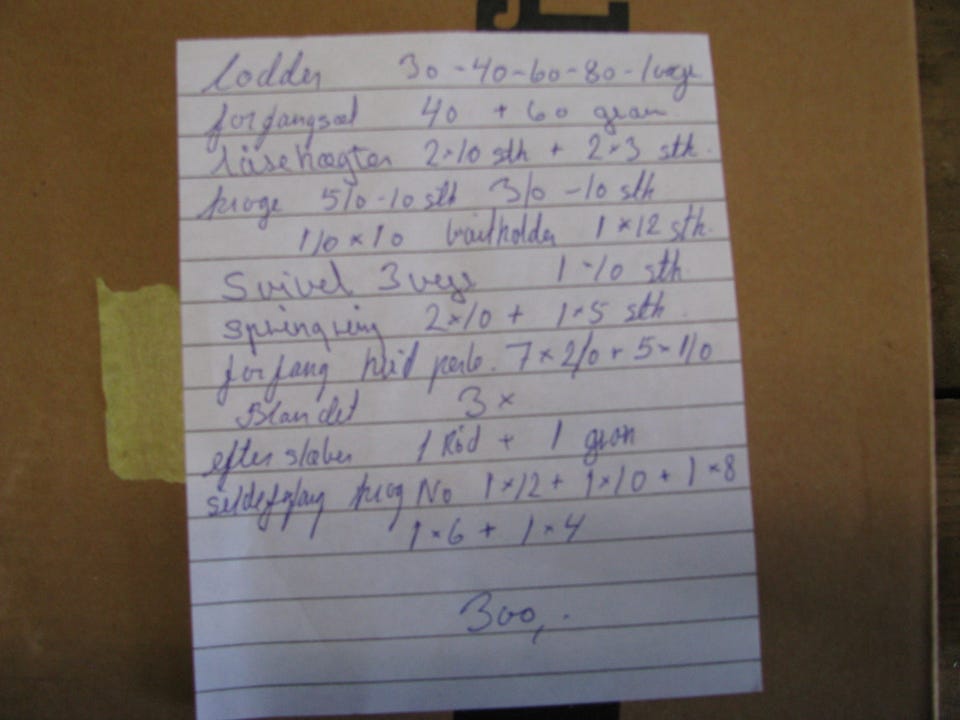 Lodder 30-40-60-80-1 væge
forfangsæt 40 + 60 gram
Låsehægter 2×10 stk + 2×3 stk.
kroge 5/0-10 stk 3/0-10 stk
1/0×10 baitholder 1×12 stk.
Svivel 3 vejs 1-10 stk
springring 2×10 + 1×5 stk
forfang hvid perle. 7×2/0+5×1/0
Blandet 3×
efterslæber 1 Rød + 1 grøn
krog No 1×12+1×10+1×8
1×6 + 1×4
300,-